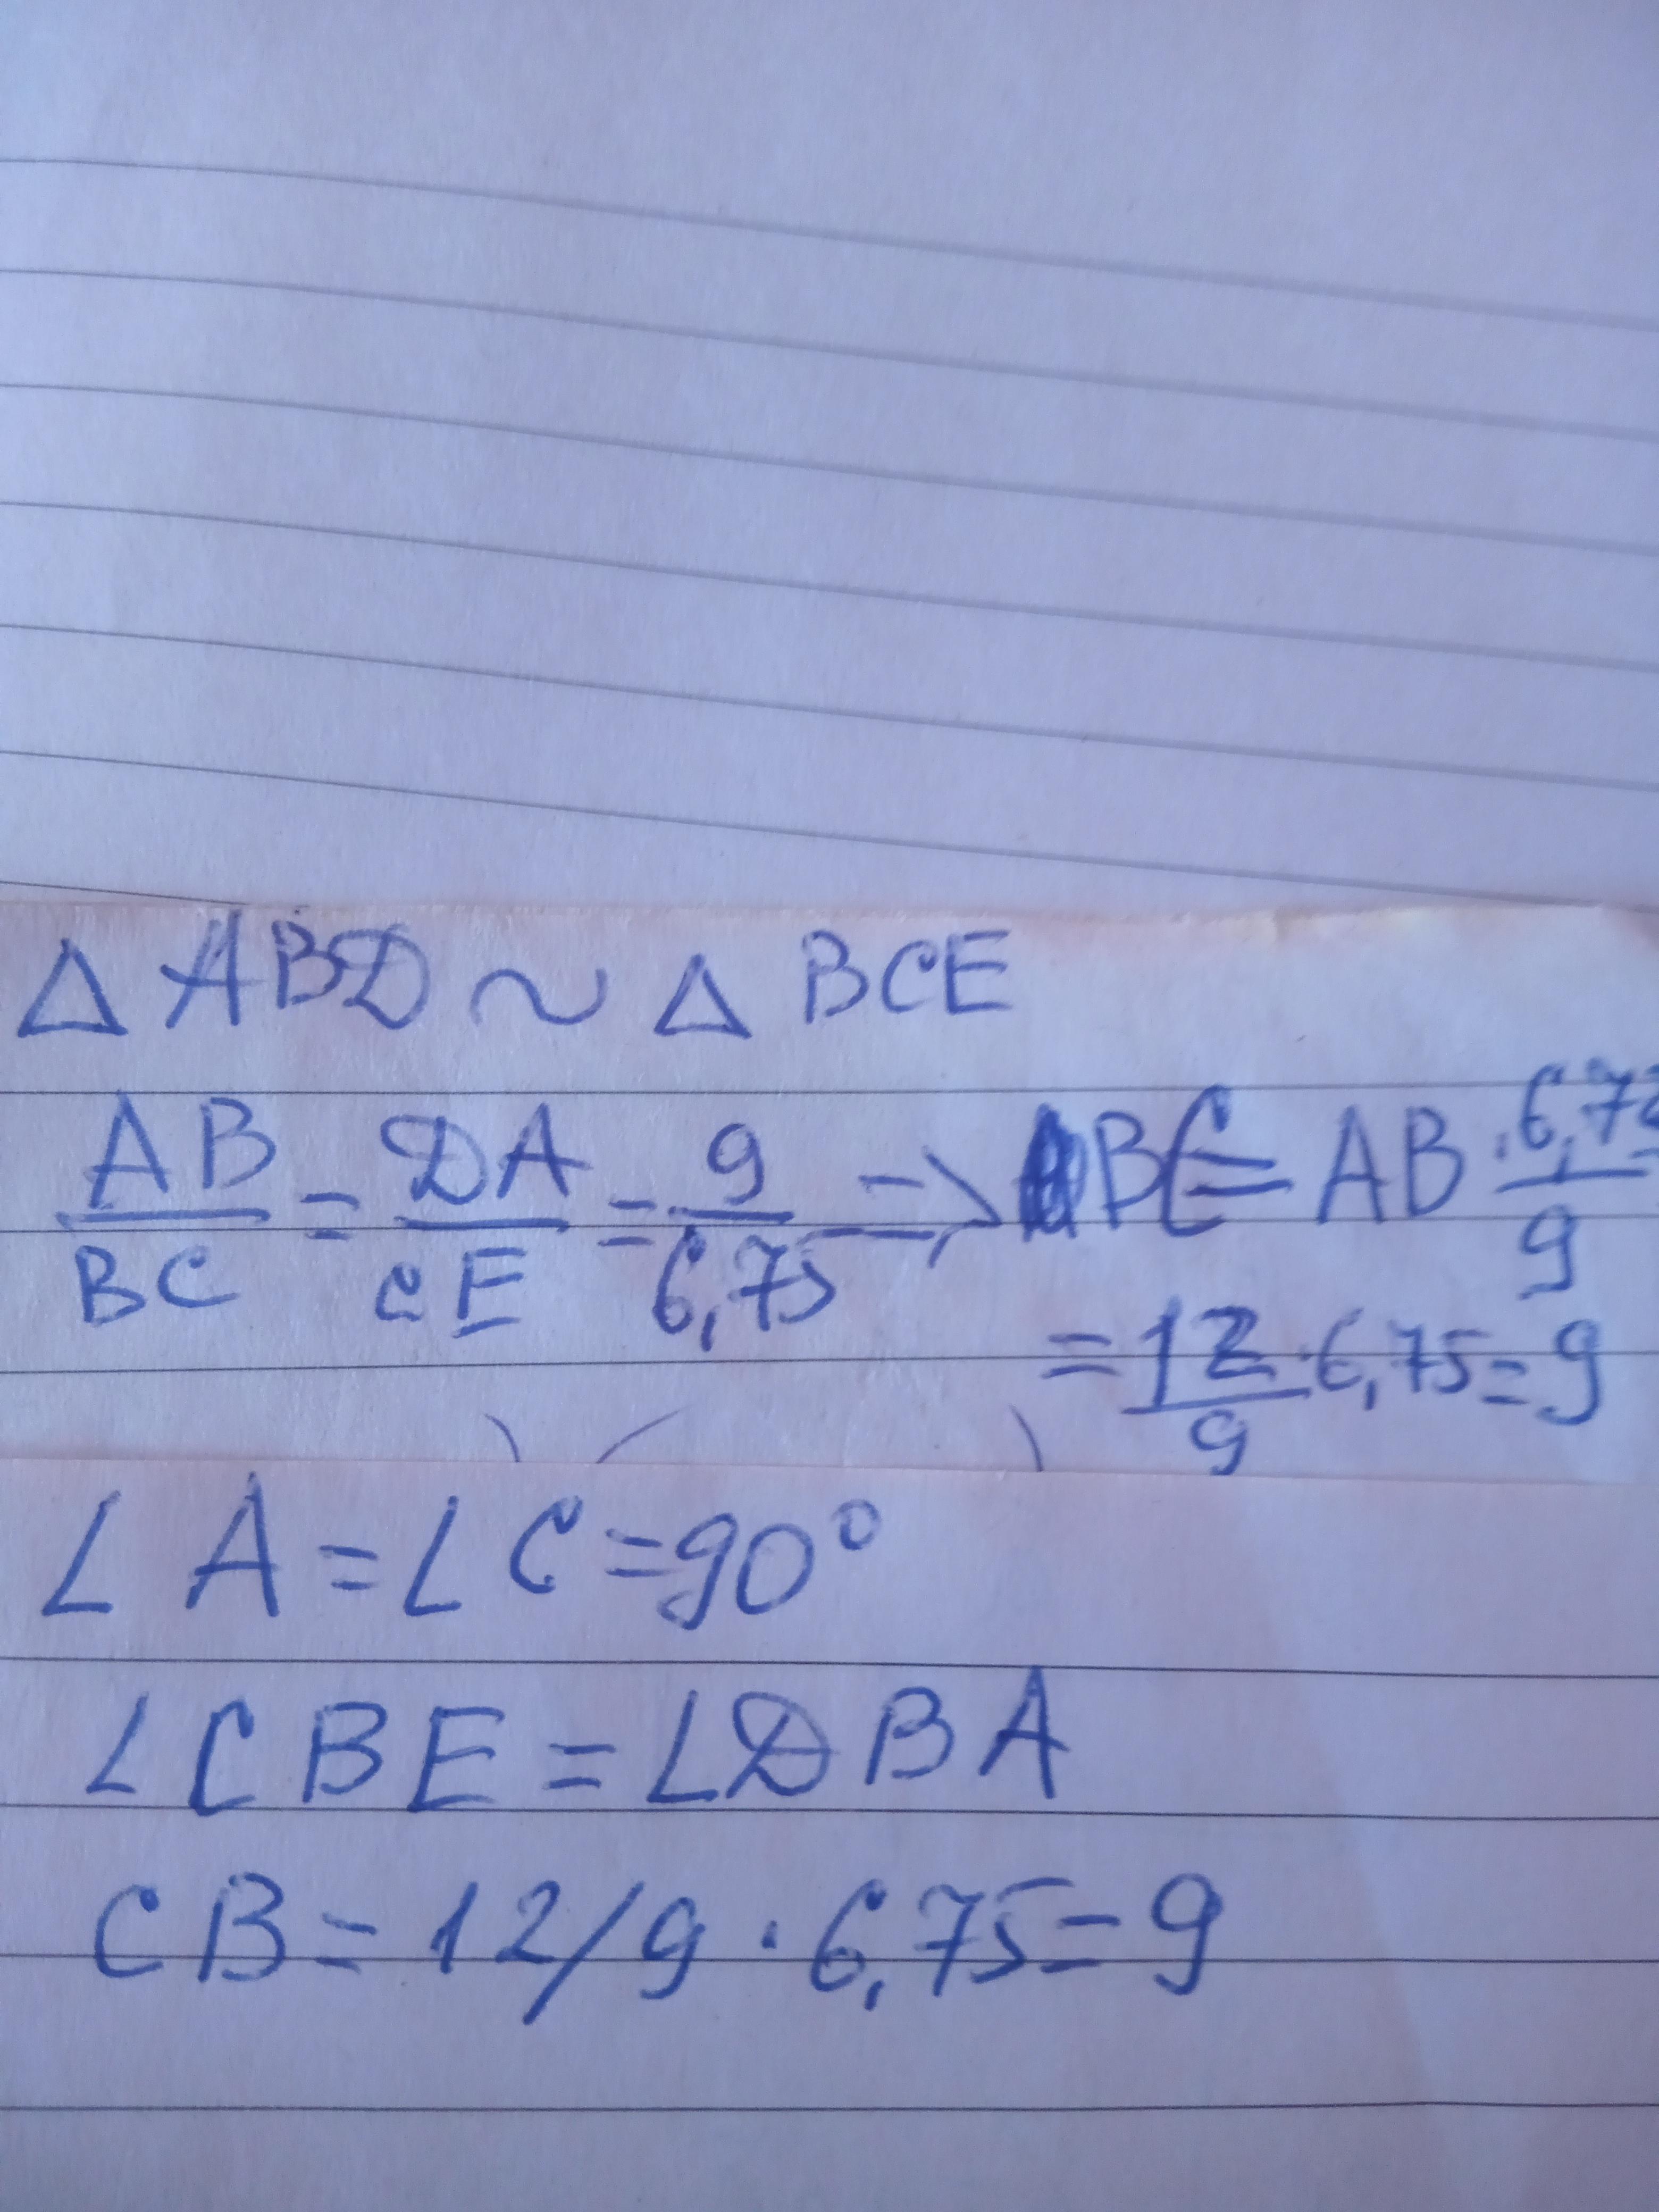 △ ABD ~ △ BCE
AB/BC = DA/CE = 9/6,75 => BC = AB · 6,75/9
= 12/9 · 6,75 = 9
∠ A = ∠ C = 90°
∠ CBE = ∠ DBA
CB = 12/9 · 6,75 = 9